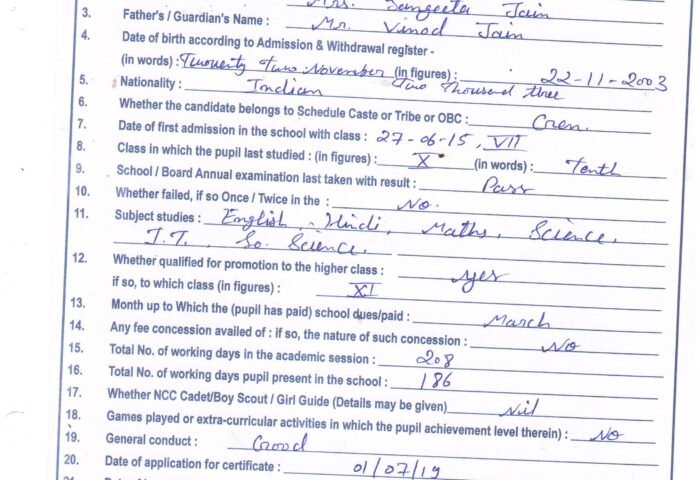 Mrs. Sangeeta Jain
3. Father's / Guardian's Name : Mr. Vinod Jain
4. Date of birth according to Admission & Withdrawal register -
(in words) : Twounty Two November (in figures) : 22-11-2003
Two Thousand three
5. Nationality : Indian
6. Whether the candidate belongs to Schedule Caste or Tribe or OBC : Gren.
7. Date of first admission in the school with class : 27-06-15, VII
8. Class in which the pupil last studied : (in figures) : X (in words) : Tenth
9. School / Board Annual examination last taken with result : Pass
10. Whether failed, if so Once / Twice in the : No.
11. Subject studies : English, Hindi, Maths, Science,
I.T., So. Science,
12. Whether qualified for promotion to the higher class : yes
if so, to which class (in figures) : XI
13. Month up to Which the (pupil has paid) school dues/paid : March
14. Any fee concession availed of : if so, the nature of such concession : No
15. Total No. of working days in the academic session : 208
16. Total No. of working days pupil present in the school : 186
17. Whether NCC Cadet/Boy Scout / Girl Guide (Details may be given) Nil
18. Games played or extra-curricular activities in which the pupil achievement level therein) : No
19. General conduct : Good
20. Date of application for certificate : 01/07/19